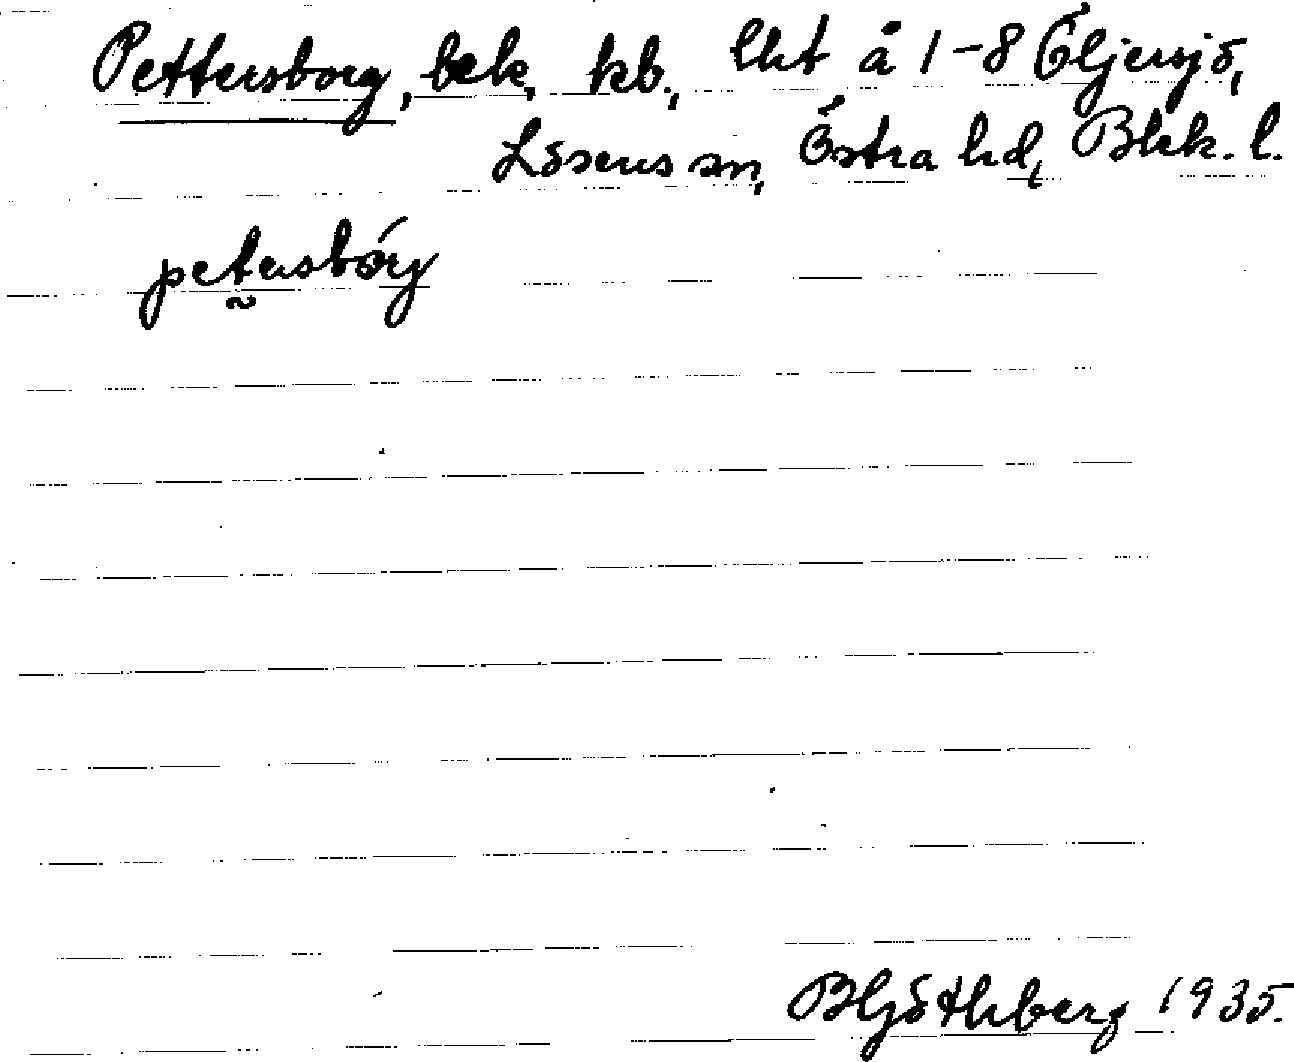 Pettersborg, bek, kb., lht å 1-8 Öljersjö,
Lösens sn, Östra hd, Blek. l.
petersbórg
BHjöthberg 1935.